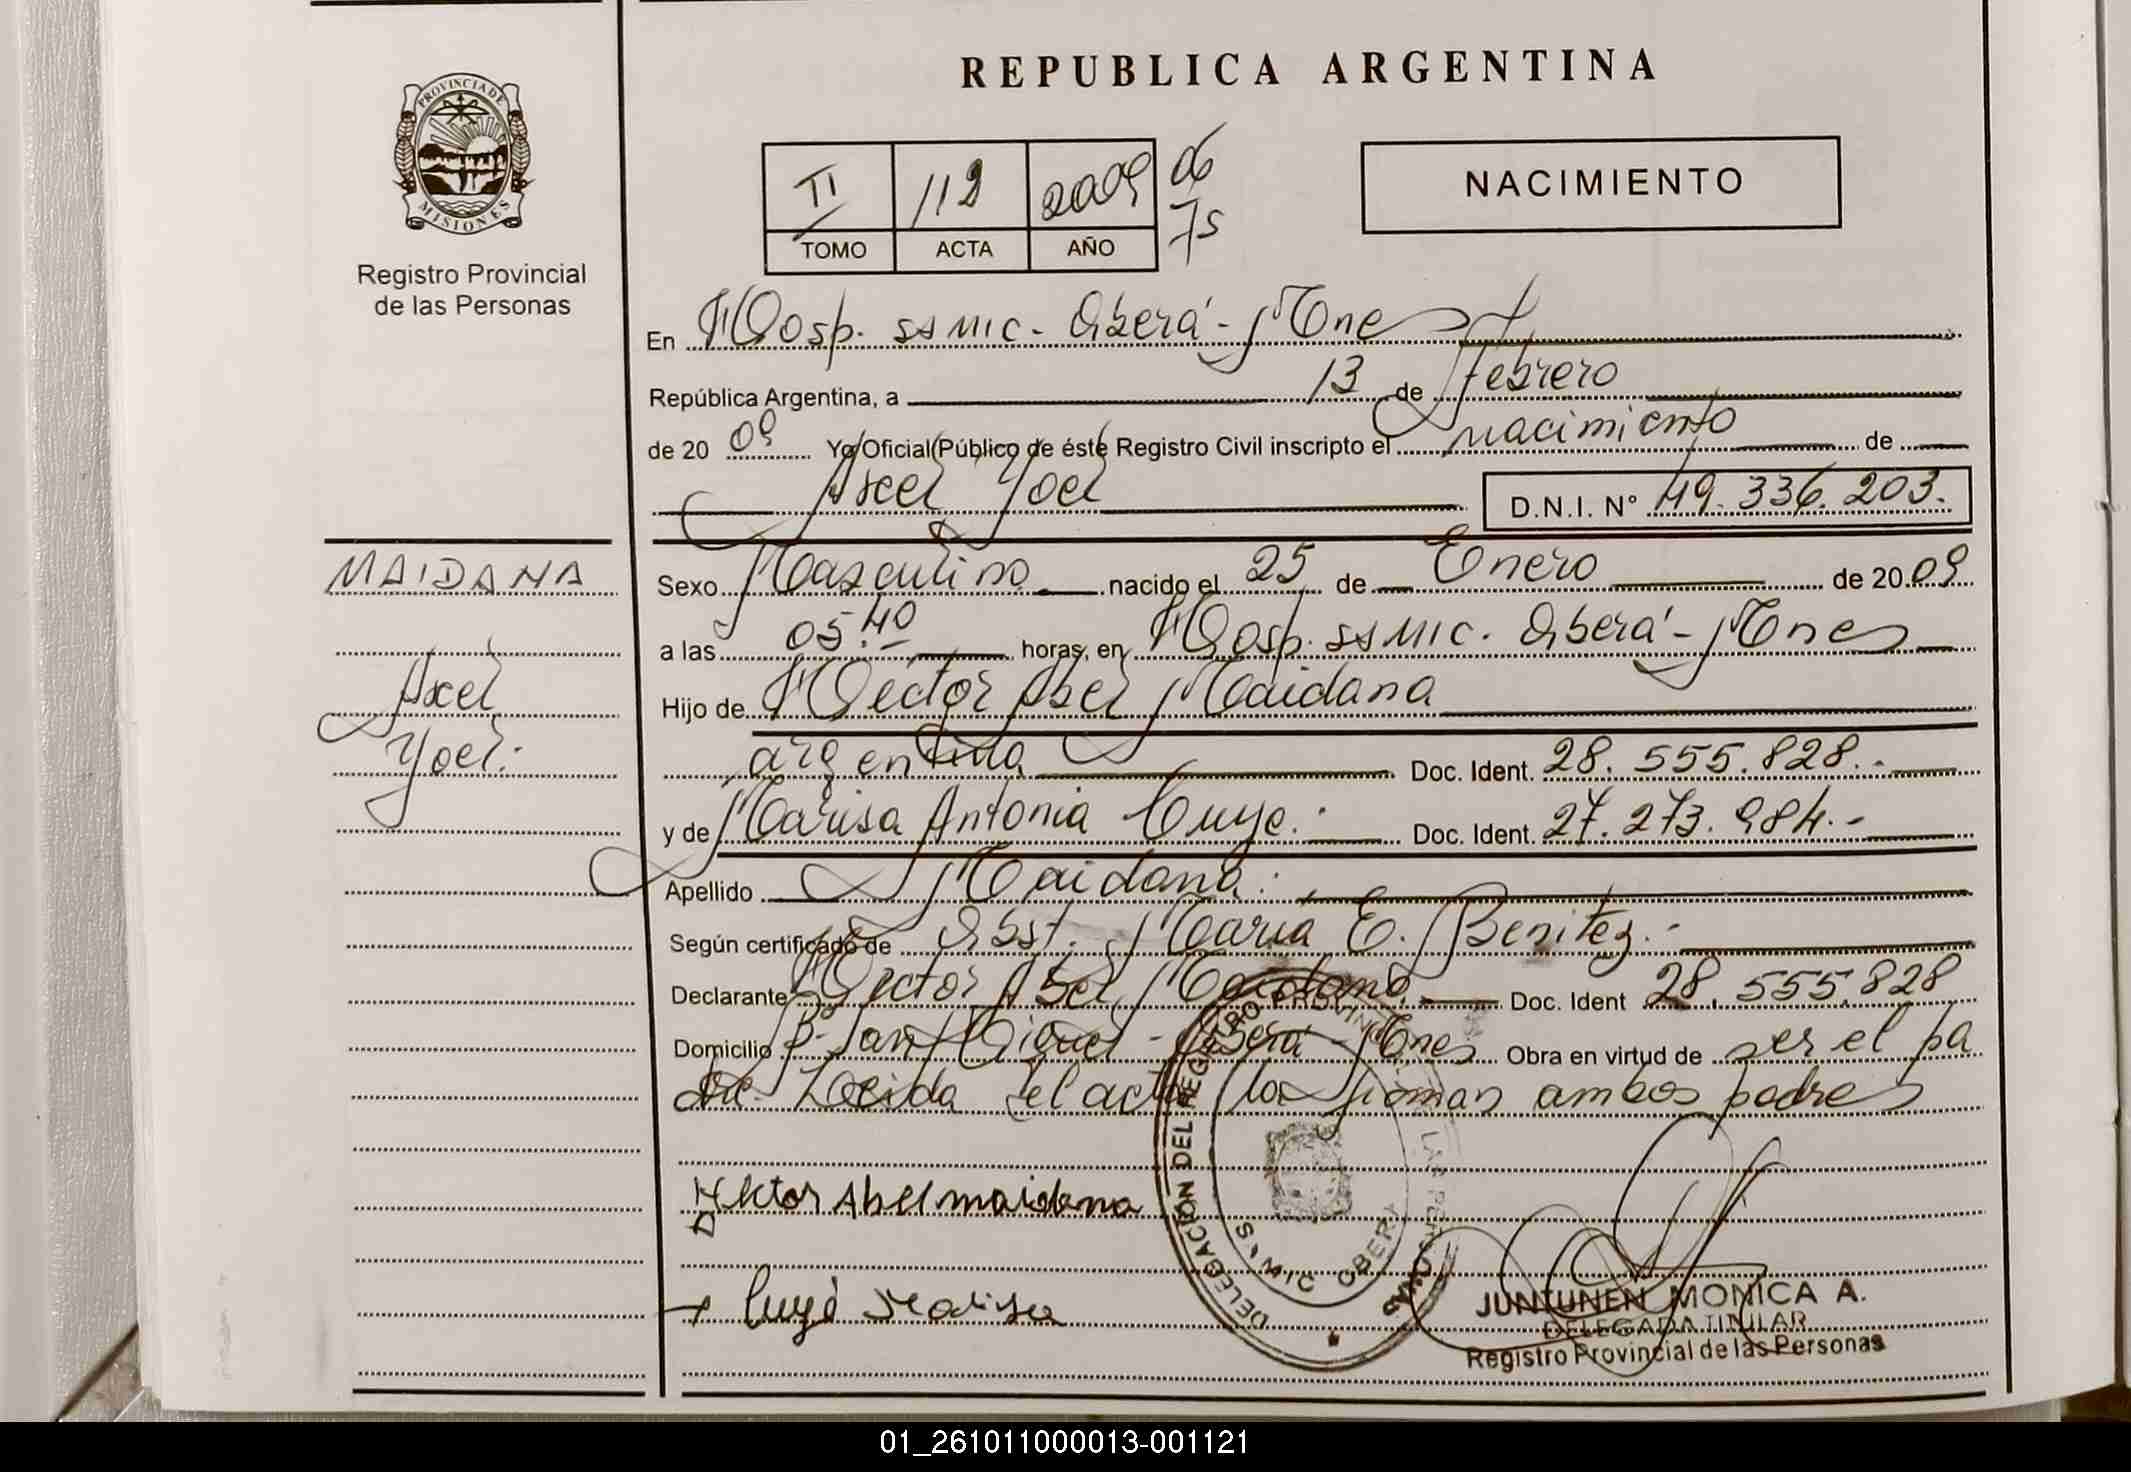 REPUBLICA ARGENTINA
PROVINCIA DE
MISIONES
Registro Provincial
de las Personas
II 112 2009 06
75
TOMO ACTA AÑO
NACIMIENTO
En Hosp. SSMIC. Oberá - Mnes
República Argentina, a 13 de Febrero
de 2009 Yo Oficial Público de éste Registro Civil inscripto el nacimiento de
Axel Yoel D.N.I. Nº 49.336.203.
MAIDANA
Axel
Yoel.
Sexo Masculino nacido el 25 de Enero de 2009
a las 05.40 horas, en Hosp. SSMIC. Oberá - Mnes
Hijo de Hector Abel Maidana
argentina Doc. Ident. 28.555.828.-
y de Marisa Antonia Cuye.- Doc. Ident. 27.273.984.-
Apellido Maidana.
Según certificado de Obst. Maria E. Benitez.-
Declarante Hector Abel Maidana Doc. Ident 28.555.828
Domicilio Bº San Miguel - Oberá - Mnes Obra en virtud de ser el pa
dre. Leida el acta la firman ambos padres
Hektor Abel maidana
Cuyé Marisa
DELEGACION DEL REGISTRO PROVINCIAL LAS PERSONAS
SSMIC OBERA
JUNTUNEN MONICA A.
DELEGADA TITULAR
Registro Provincial de las Personas
01_261011000013-001121